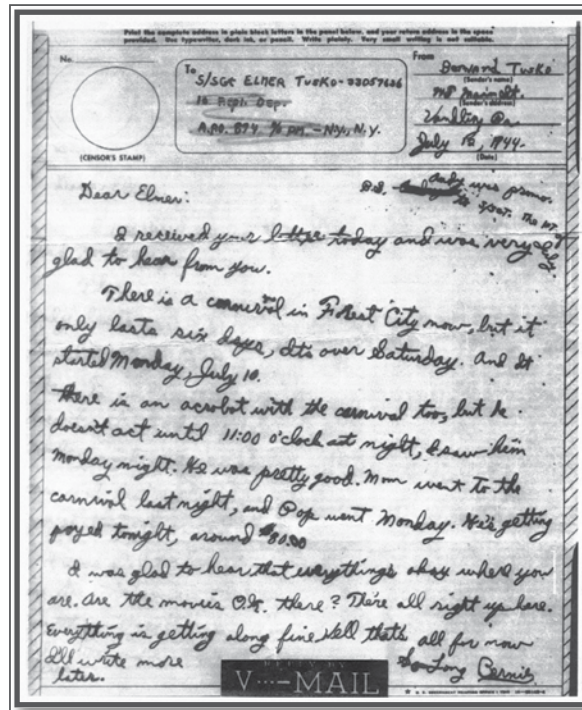 Print the complete address in plain block letters in the panel below, and your return address in the space
provided. Use typewriter, dark ink, or pencil. Write plainly. Very small writing is not suitable.
No.
(CENSOR'S STAMP)
To
S/SGT ELMER TUSKO-33057636
10 Repl. Dep.
A.P.O. 874 % P.M. - N.Y., N.Y.
From
Bernard Tusko
(Sender's name)
(Sender's address)
Vandling Pa.
July 12, 1944.
(Date)
P.S. Andy was promo.
to Sgt. The 1st of
July.
Dear Elmer:
I received your letter today and was very
glad to hear from you.
There is a carnival in Forest City now, but it
only lasts six days, its over Saturday. And It
started Monday, July 10.
there is an acrobot with the carnival too, but he
doesn't act until 11:00 o'clock at night, I saw him
Monday night. He was pretty good. Mom went to the
carnival last night, and Pop went Monday. He's getting
payed tonight, around $80.00
I was glad to hear that everything's okay where you
are. Are the movies O.K. there? There all right up here.
Everything is getting along fine. Well that's all for now
I'll write more
later.
So Long Bernie
REPLY BY
V···—MAIL